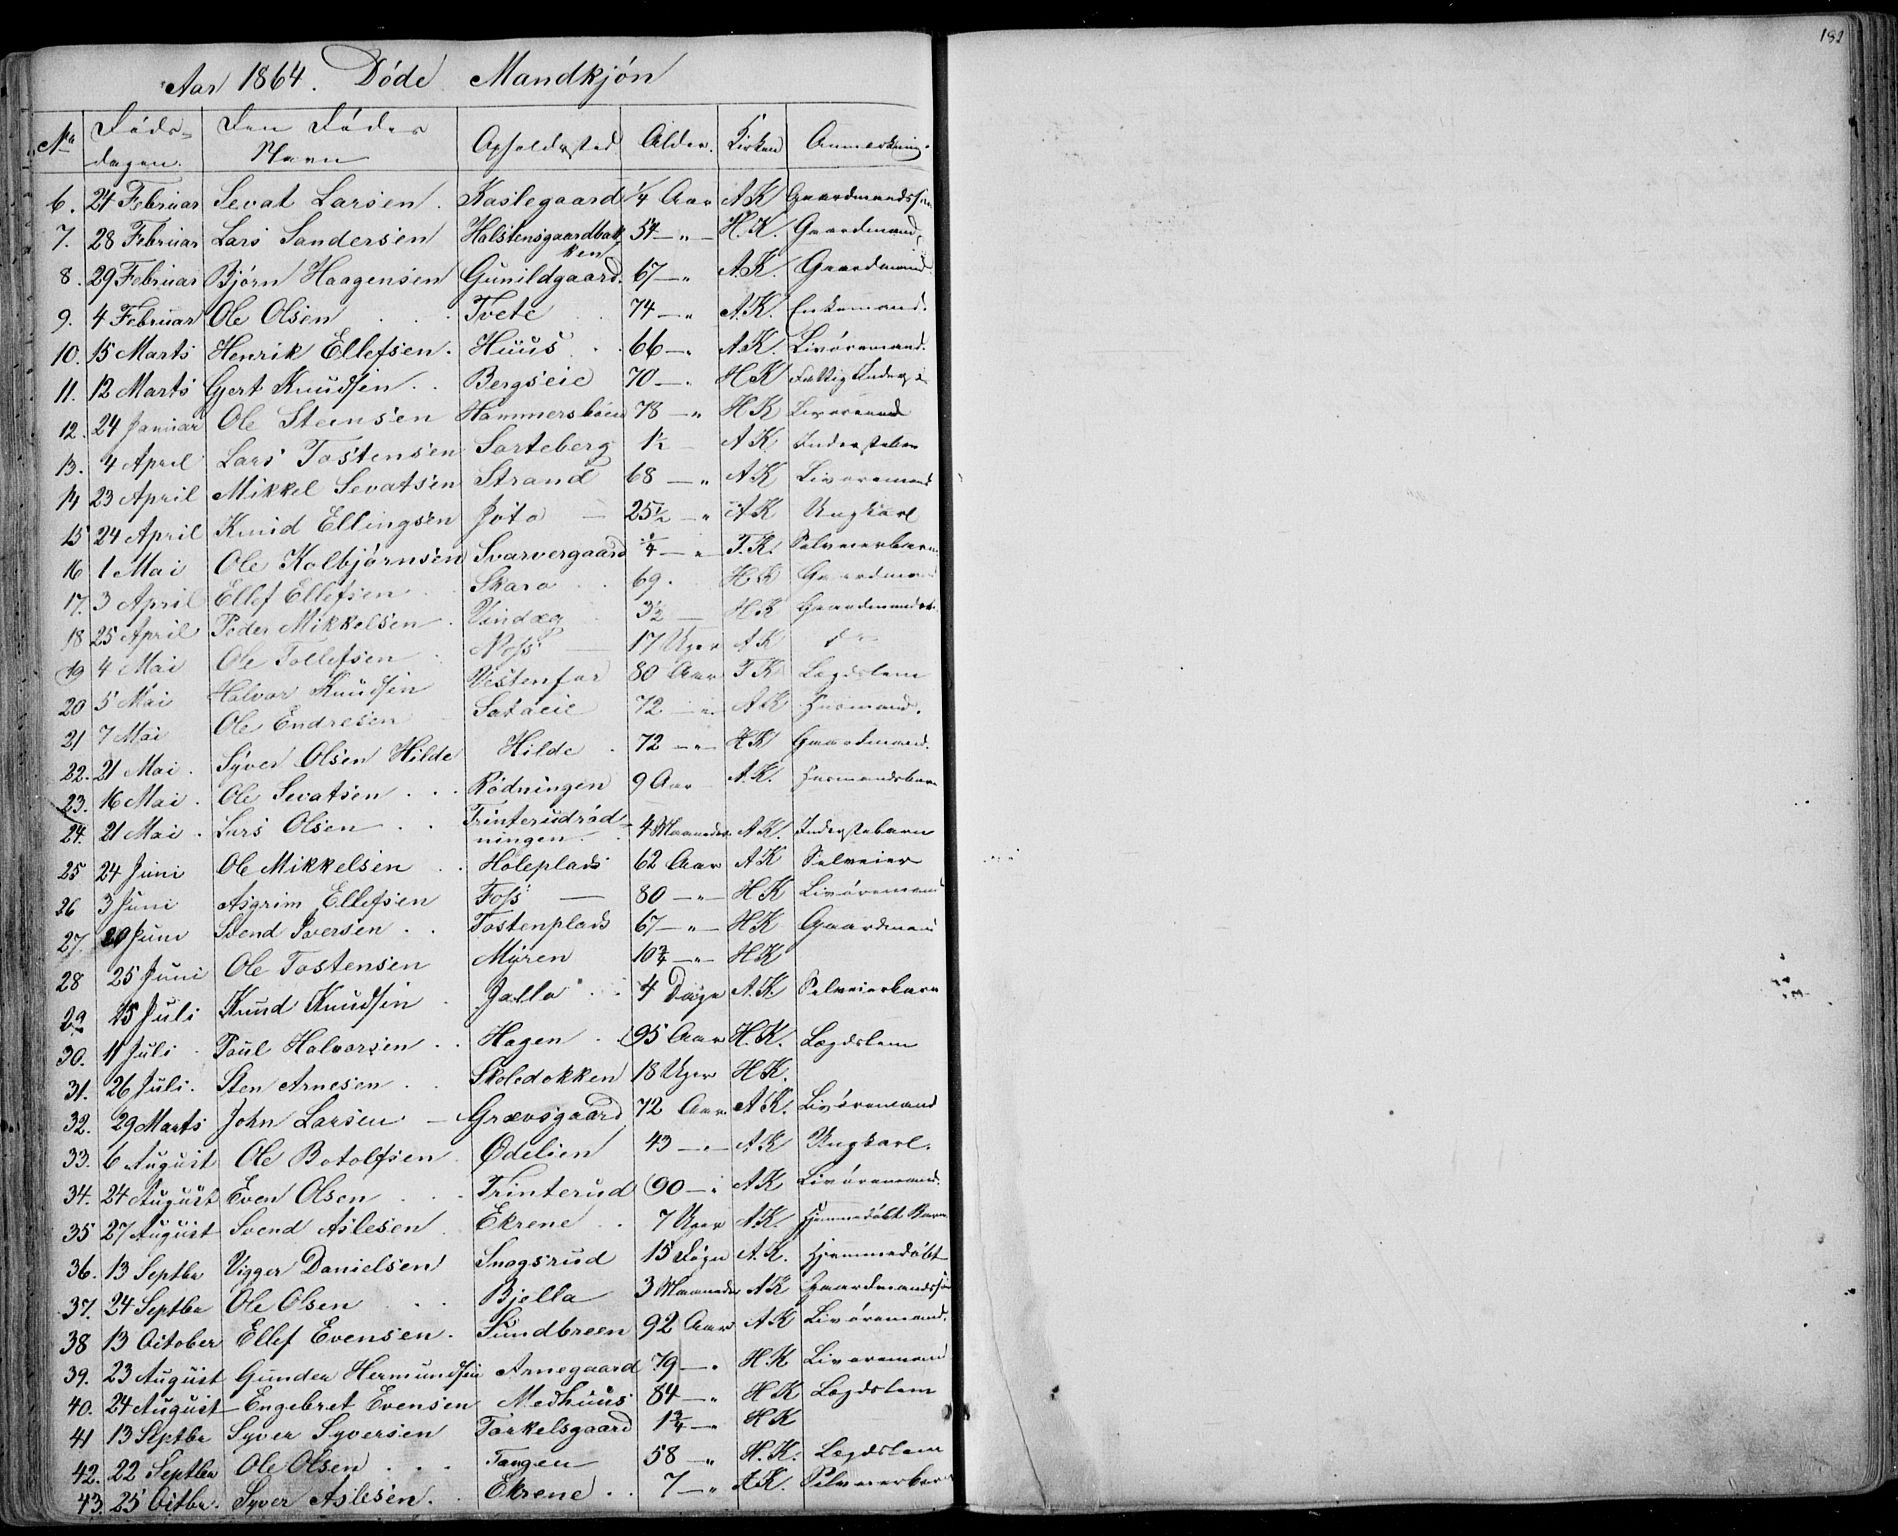 182
Aar 1864. Døde Mandkjøn
No Døds- dagen. Den Dødes Navn Opholdssted Alder. Kirken Anmerkning.
6. 24 Februar Sevat Larsen. Kaslegaard 1/4 Aar A K Gaardmandssøn
7. 28 Februar Lars Sandersen Holstensgaardbakken 54 — " — H. K. Gaardmand
8. 29 Februar Bjørn Haagensen Gunildgaard. 67 — " A. K. Gaardmand
9. 4 Februar Ole Olsen Tvete 74 — " A. K. Enkemand.
10. 15 Marts Henrik Ellefsen. Huus 66 — A K. Livøremand.
11. 12 Marts Gert Knudsen Bergseie 70 — H K Fattig Inderst
12. 24 Januar Ole Steensen Hammersbøen 78 — " H K Livøremand
13. 4 April Lars Tostensen Sorteberg 1 1/2 — A K. Inderstebarn
14 23 April Mikkel Sevatsen Strand 68 — " A K Livøremand
15 24 April Knud Ellingsen Jøto — 25 1/2 — " A K Ungkarl
16 1 Mai Ole Kolbjørnsen Svarvergaard 1/4 — " T. K. Selveierbarn
17. 3 April Ellef Ellefsen Skaro 69. H K Gaardmand
18 25 April Peder Mikkelsen Vindeg 3 1/2 — H K Gaardmands
19 4 Mai Ole Tollefsen Noss — 17 Uger A K do
20 5 Mai Halvor Knudsen Vestenfor 80 Aar T K Lægdslem
21 7 Mai Ole Endresen Sataeie 72 — " A K Husmand.
22. 21 Mai. Syver Olsen Hilde Hilde. 72 — " — H K Gaardmand.
23. 16 Mai. Ole Sevatsen Rødningen 9 Aar A. K. Husmandsbarn
24. 21 Mai. Lars Olsen Trinterudrødningen 4 Maaneder A K. Inderstebarn
25 24 Juni Ole Mikkelsen Holeplads 62 Aar A K Selveier
26 3 Juni Asgrim Ellefsen Foss — 80 — " — H K Livøremand
27. 20 Juni Svend Iversen Tostenplads 67 — " — H K Gaardmand
28 25 Juni Ole Tostensen Myren 10 3/4 — " — H K
29 15 Juli Knud Knudsen Jalla 4 Dage A. K. Selveierbarn
30. 11 Juli Poul Halvorsen Hagen 95 Aar H. K. Lægdslem
31. 26 Juli. Sten Arnesen Skoledokken 18 Uger H K.
32. 29 Marts John Larsen — Grævsgaard 72 Aar. A K. Livøremand
33. 6 August Ole Botolfsen Ødelien 43 — " — A K Ungkarl.
34. 24 August Even Olsen Trinterud 90 — " A K Livøremand.
35 27 August Svend Aslesen Ekrene 7 Uger A K. Hjemmedøbt Barn
36. 13 Septbr Vigger Danielsen Snogsrud 15 Døgn A. K. Hjemmedøbt
37. 24 Septbr Ole Olsen Bjella 3 Maaneder A K Gaardmandssøn
38 13 October Ellef Evensen. Sundbreen 92 Aar A K Livøremand.
39. 23 August Gunder Hermundsen Arnegaard 79 — " H. K Livøremand
40. 24 August — Engebret Evensen Medhuus 84 — " H K Lægdslem
41 13 Septbr Syver Syversen Torkelsgaard 1 3/4 — " H K
42. 22 Septbr Ole Olsen Tangen 58 — " H. K. Lægdslem
43. 25 Octbr. Syver Aslesen. Ekrene 7 — " A K. Selveierbarn